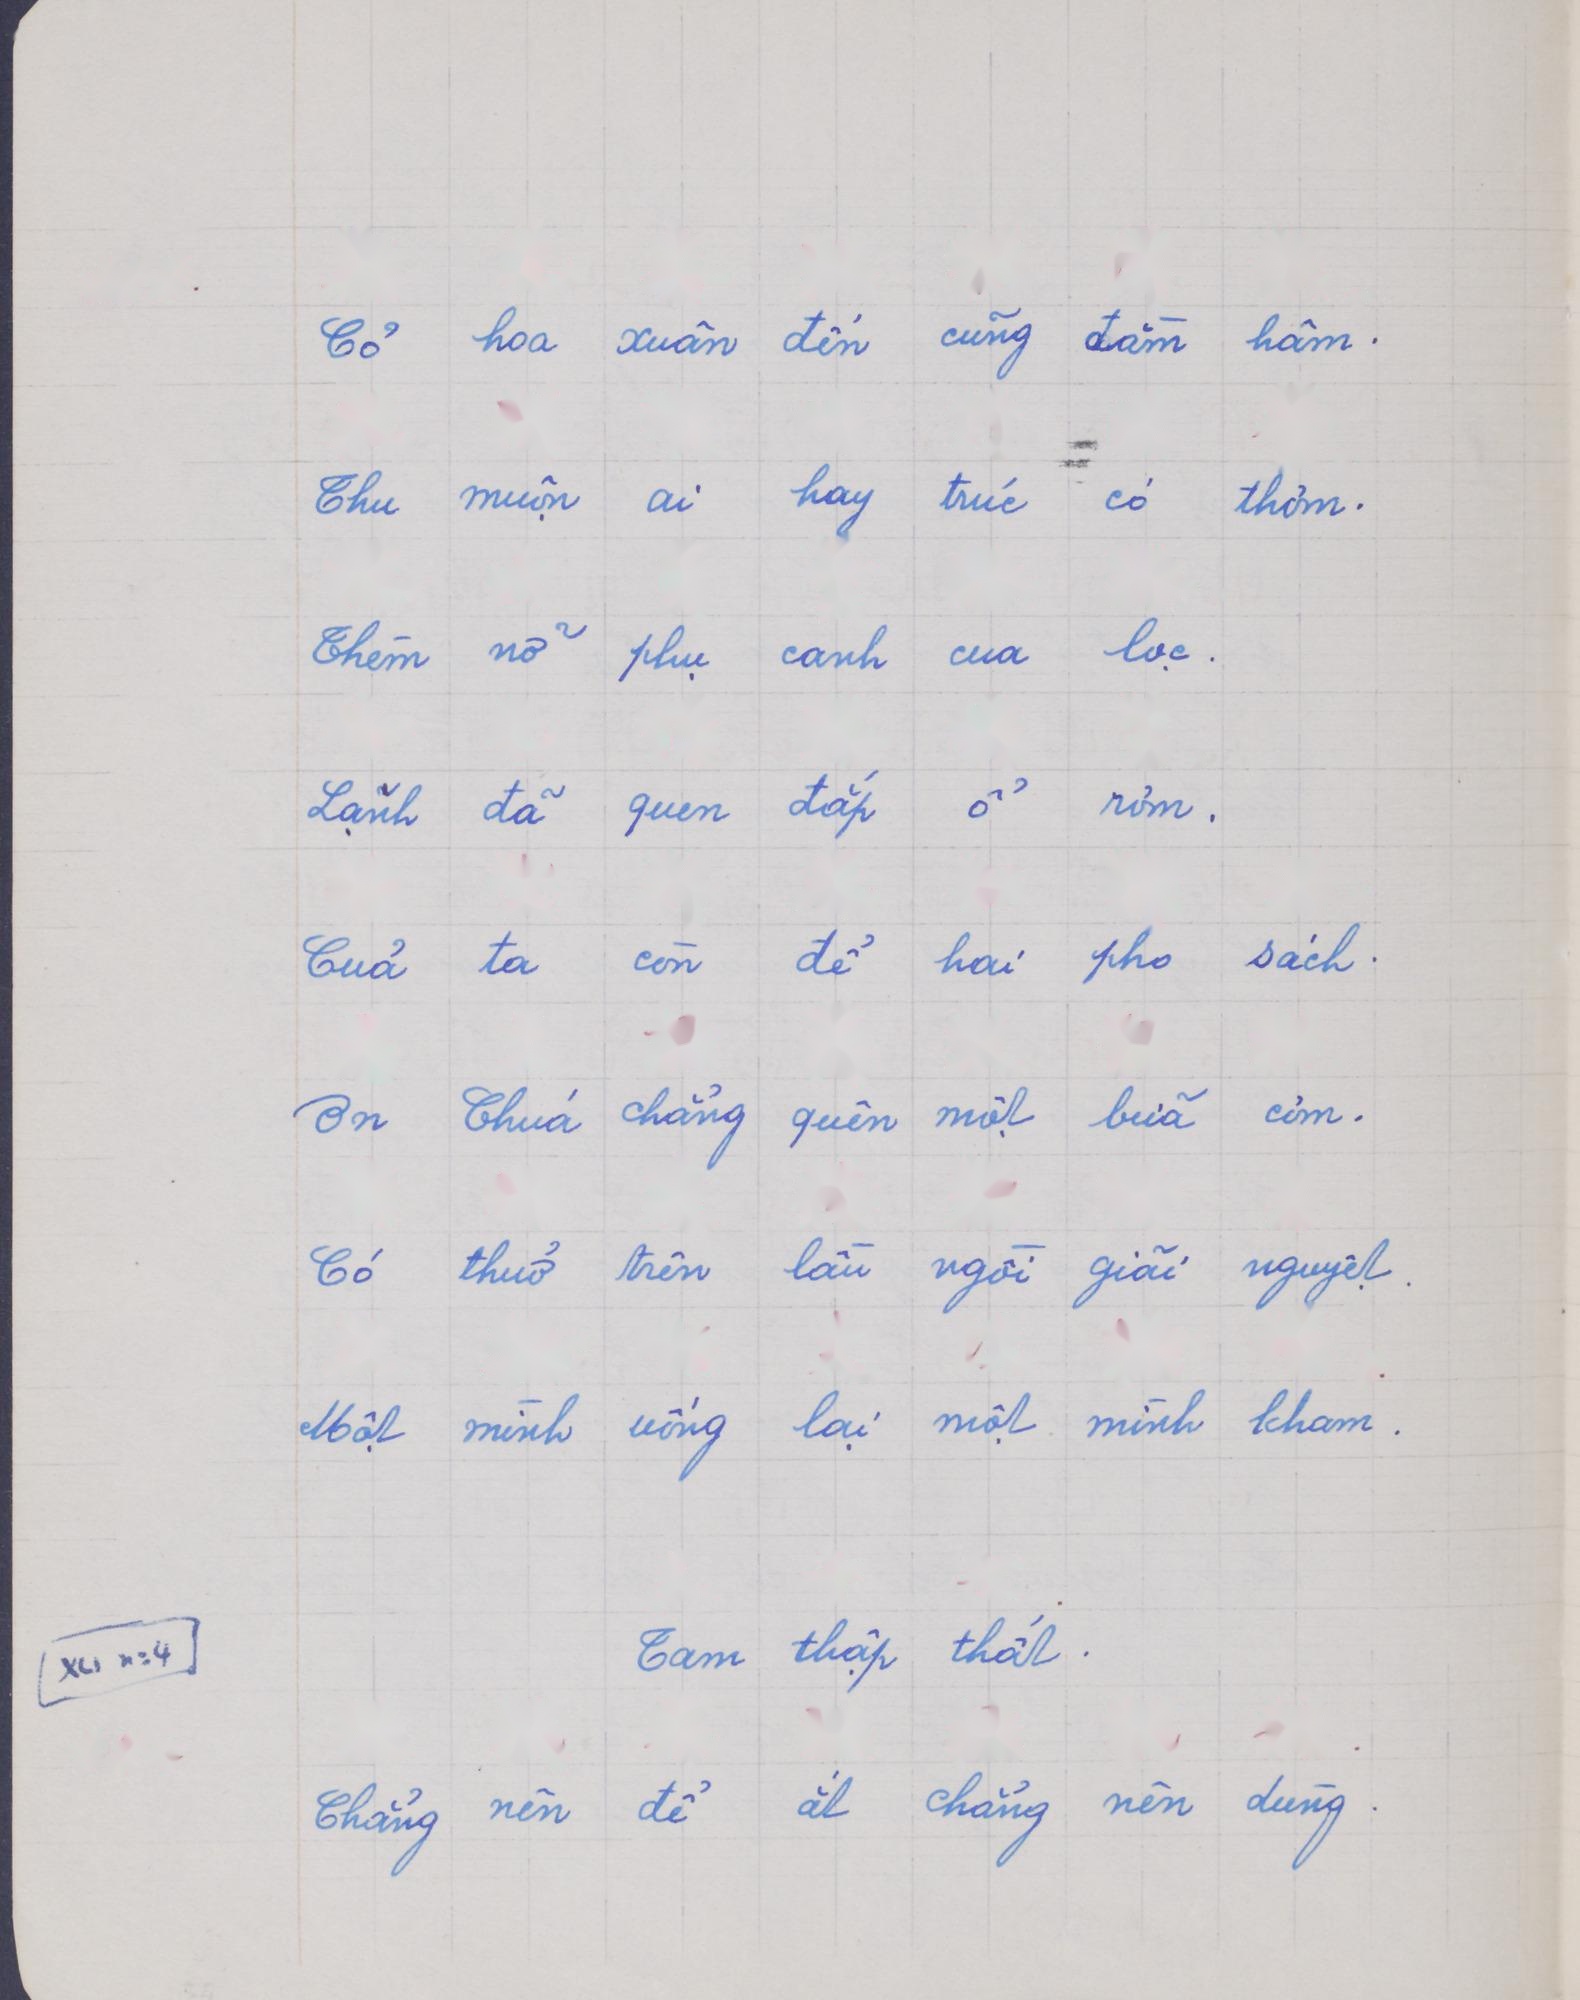 Cỏ hoa xuân đến cũng đầm hâm.
Thu muộn ai hay trúc có thơm.
Thèm nỡ phụ canh cua lọc.
Lạnh đã quen đắp ổ rơm.
Cuả ta còn để hai pho sách.
Ơn Chuá chẳng quên một buiã cơm.
Có thuở trên lầu ngồi giãi nguyệt.
Một mình uống lại một mình kham.
Tam thập thất.
XLI n=4
Chẳng nên để ắt chẳng nên dùng.